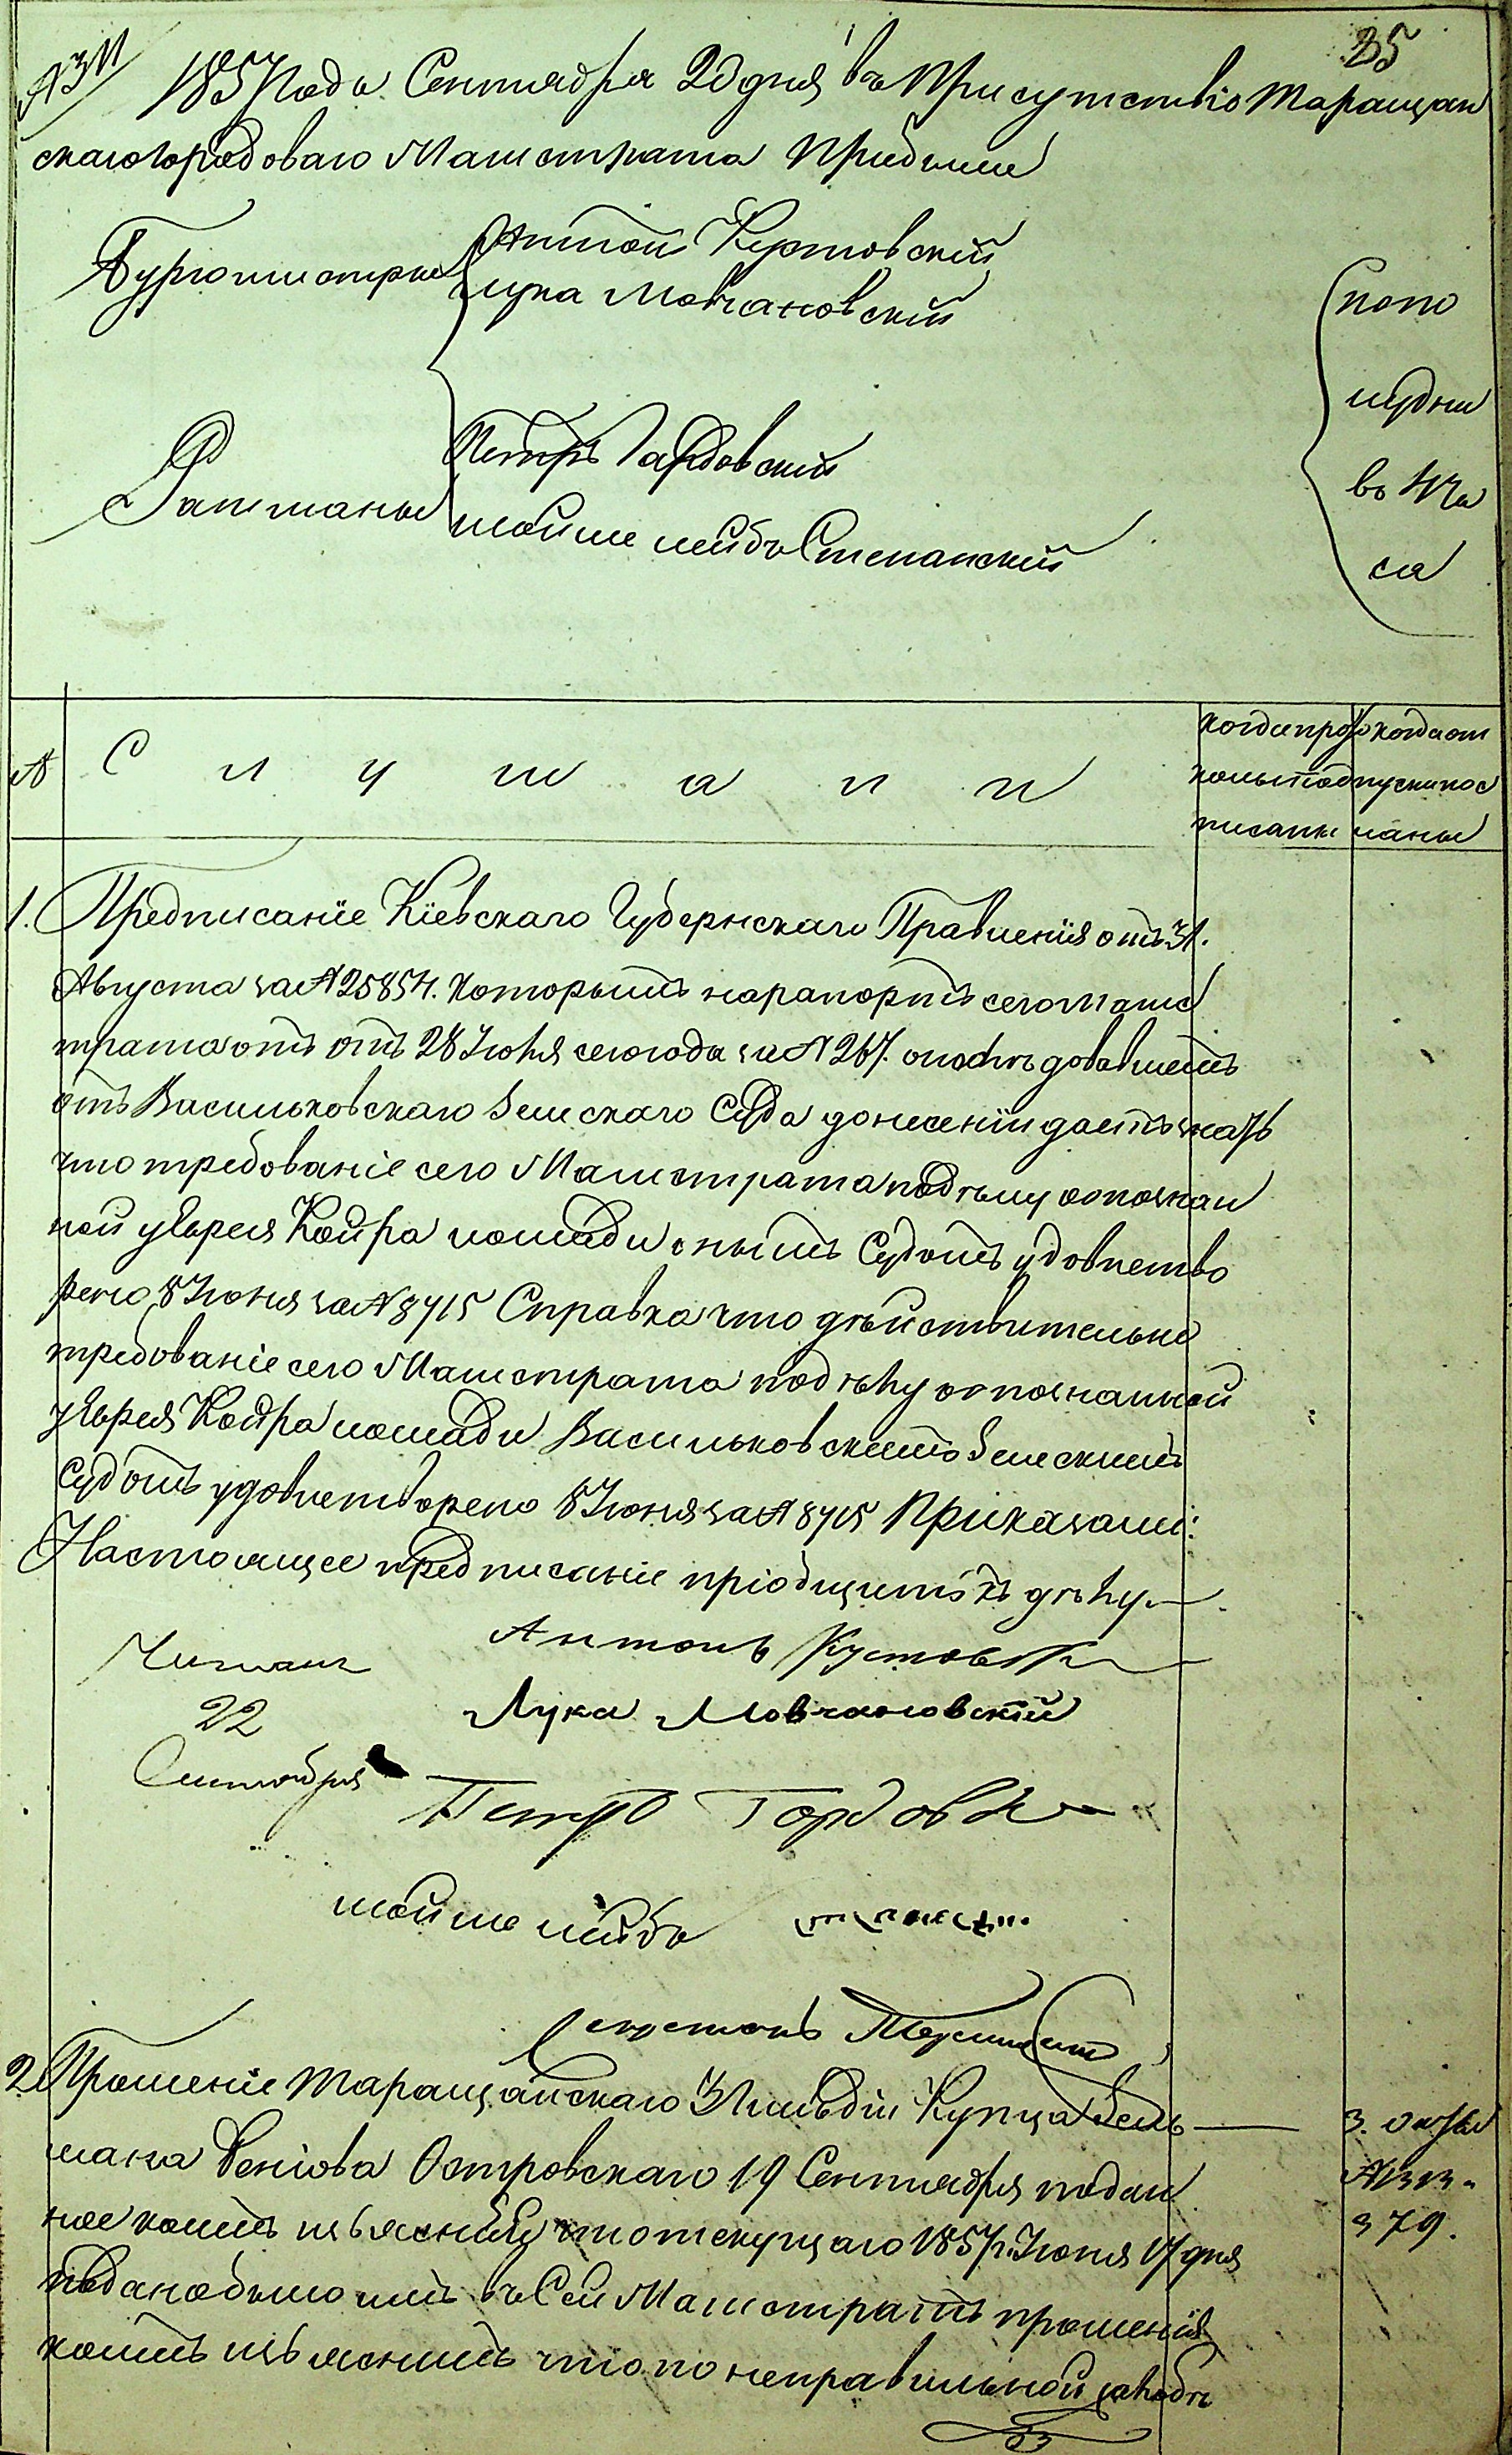 35
1857 года Сентября 20 дня въ Присутствіе Таращан
скаго городоваго Магистрата Прибыли
Бургомистры
Антонъ Кустовскій
Лука Мовчановскій
Ратманы
Петръ Гордовскій
Мойше Лейбъ Степанскій
попо
лудни
въ
ча
са
№
С л у ш а л и
когда прото
колы под
писаны
когда от
пуски пос
ланы
1. Предписаніе Кіевскаго Губернскаго Правленія отъ 31.
Августа за № 25854. которымъ на рапортъ сего Магис
трата отъ отъ 28 Іюля сего года за № 267. о последовавшемъ
отъ Васильковскаго Земскаго Суда донесеніи даетъ знать
что требованіе сего Магистрата по делу о опознан
ной у Еврея Койфа лошади онымъ Судомъ удовлетво
рено 8 Іюня за № 8715 Справка что действительно
требованіе сего Магистрата по делу о опознанной
у Еврея Койфа лошади Васильковскимъ Земскимъ
Судомъ удовлетворено 8 Іюня за № 8715 Приказали:
Настоящее предписаніе пріобщить къ делу.
Читалъ
22
Сентября
Антонъ Кустовск
Лука Мовчановскій
Петръ Гордовск
Мойше Лейбъ
2. Прошеніе Таращанскаго 3 Гильдіи Купца Зель
мана Островскаго 19 Сентября подан
ное коимъ изъясняя что текущаго 1857 г. Іюня 17 дня
подано было имъ въ Сей Магистратъ прошенія
коимъ изъяснилъ что по неправильной
3. октяб
379.